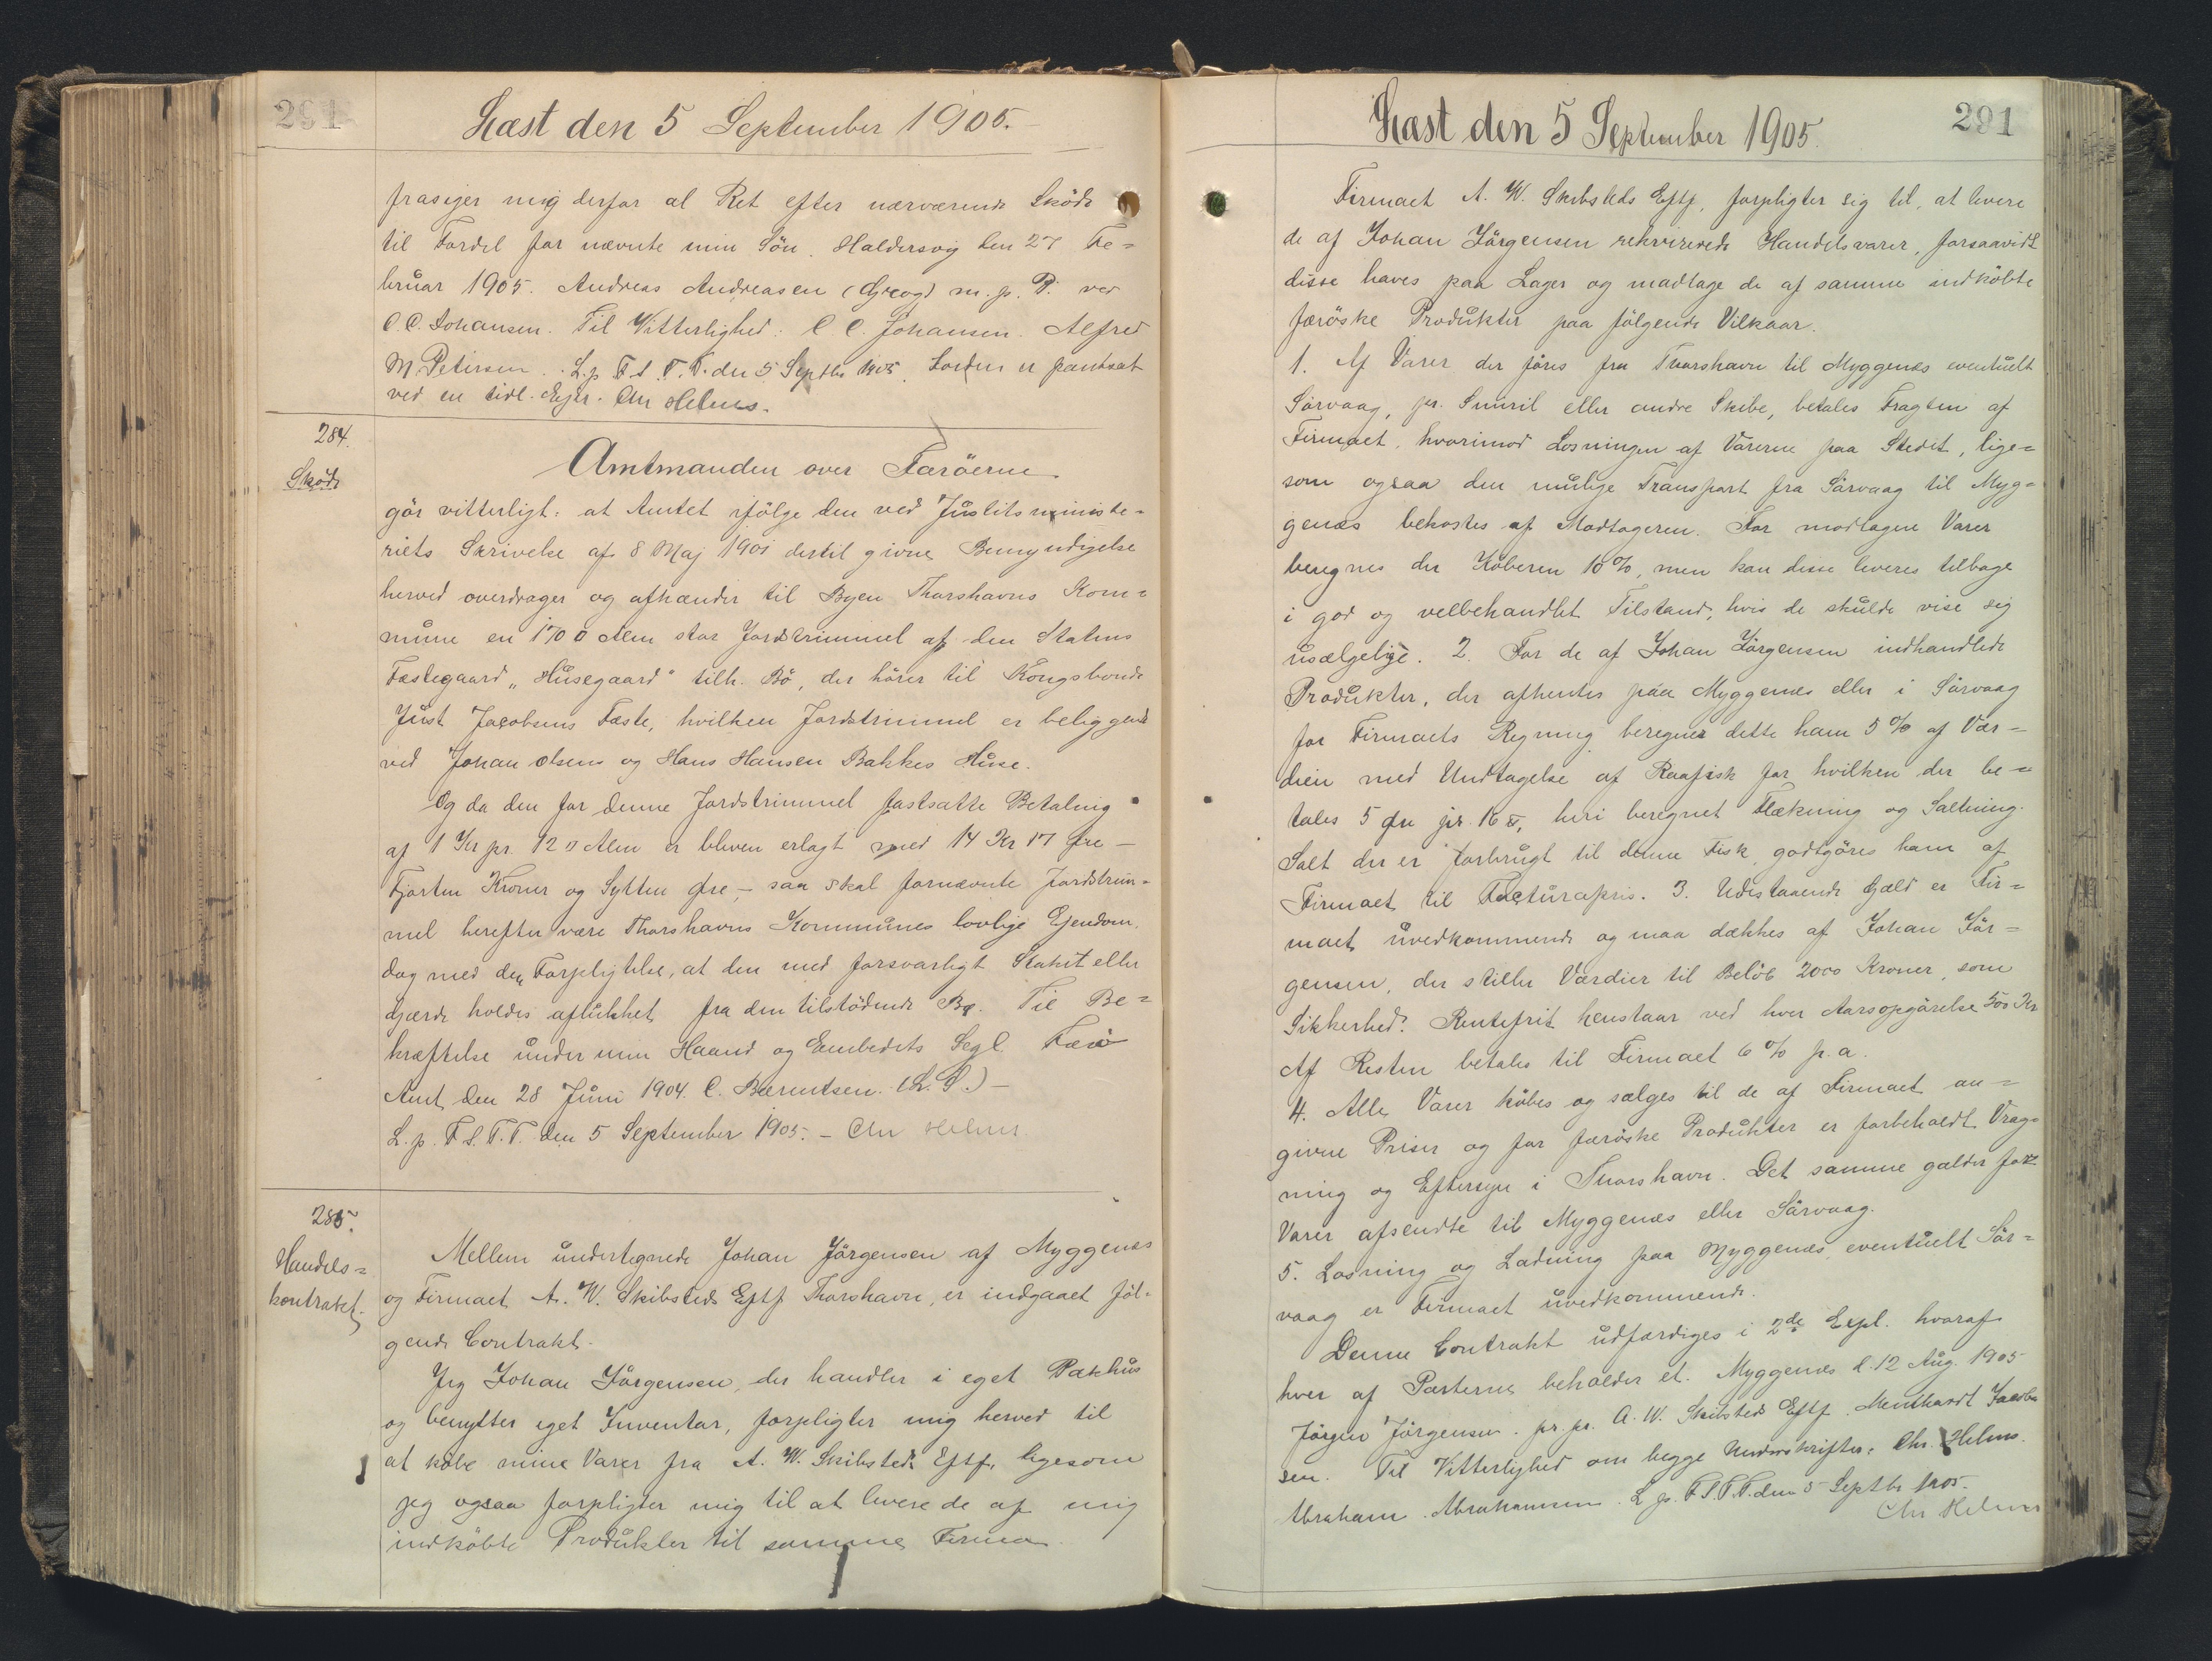 291
Læst den 5 September 1905.
frasiger mig derfor al Ret efter nærværende Sköde
til Fordel for nævnte min Sön. Haldersvig den 27 Fe=
bruar 1905. Andreas Andreasen (Gjeog) m. p. P. ved
C.C. Johansen. Til Vitterlighed: C C. Johansen. Alfred
M. Petersen. L. p. F. S. T. T. den 5 Septbr 1905. Jorden er pantsat
ved en tidl. Ejer. Chr Helms.
284.
Sköde
Amtmanden over Færöerne
gör vitterligt: at Amtet ifölge den ved Justitsministe-
riets Skrivelse af 8 Maj 1901 dertil givne Bemyndigelse
herved overdrager og afhænder til Byen Thorshavns Kom=
mune en 170 □ Alen stor Jordstrimmel af den Statens
Fæstegaard „Husegaard" tilh. Bö, der hörer til Kongsbonde
Just Jacobsens Fæste, hvilken Jordstrimmel er beliggende
ved Johan Olsens og Hans Hansen Bakkes Huse.
Og da den for denne Jordstrimmel fastsatte Betaling
af 1 Kr pr. 12 □ Alen er bleven erlagt med 14 Kr 17 Øre -
Fjorten Kroner og Sytten Øre -, saa skal fornævnte Jordstrim-
mel herefter være Thorshavns Kommunes lovlige Ejendom,
dog med den Forpligtelse, at den med forsvarligt Stakit eller
Gjærde holdes aflukket fra den tilstödende Bö. Til Be=
kræftelse under min Haand og Embedets Segl. Færö
Amt den 28 Juni 1904. C. Bærentsen. (L. S.) -
L. p. F. S. T. T. den 5 September 1905. - Chr Helms
285.
Handels=
kontrakt.
Mellem undertegnede Johan Jörgensen af Myggenæs
og Firmaet A. W. Skibsteds Eftf. Thorshavn, er indgaaet föl-
gende Contrakt.
Jeg Johan Jörgensen, der handler i eget Pakhus
og benytter eget Inventar, forpligter mig herved til
at köbe mine Varer fra A. W. Skibsteds Eftf. ligesom
jeg ogsaa forpligter mig til at levere de af mig
indköbte Produkter til samme Firma.
Læst den 5 September 1905.
291
Firmaet A. W. Skibsteds Eftf. forpligter sig til, at levere
de af Johan Jörgensen rekvirerede Handelsvarer, forsaavidt
disse haves paa Lager og modtage de af samme indköbte
færöske Produkter paa fölgende Vilkaar.
1. Af Varer der föres fra Thorshavn til Myggenæs eventuelt
Sörvaag, pr. Smiril eller andre Skibe, betales Fragten af
Firmaet, hvorimod Losningen af Varerne paa Stedet, lige=
som ogsaa den mulige Transport fra Sörvaag til Myg=
genæs bekostes af Modtageren. For modtagne Varer
beregnes der Köberen 10 %, men kan disse leveres tilbage
i god og velbehandlet Tilstand, hvis de skulde vise sig
usælgelige. 2. For de af Johan Jörgensen indhandlede
Produkter, der afhentes paa Myggenæs eller i Sörvaag
for Firmaets Regning beregnes dette ham 5 % af Vær-
dien med Undtagelse af Raafisk for hvilken der be=
tales 5 Øre pr. 16 ℔, heri beregnet Flækning og Saltning.
Salt der er forbrugt til denne Fisk, godtgöres ham af
Firmaet til Facturapris. 3. Udestaaende Gæld er Fir=
maet uvedkommende og maa dækkes af Johan Jör=
gensen, der stiller Værdier til Belöb 2000 Kroner, som
Sikkerhed. Rentefrit henstaar ved hver Aarsopgörelse 500 Kr
Af Resten betales til Firmaet 6 % p. a.
4. Alle Varer köbes og sælges til de af Firmaet an=
givne Priser og for færöske Produkter er forbeholdt Vrag-
ning og Eftersyn i Thorshavn. Det samme gælder for
Varer afsendte til Myggenæs eller Sörvaag.
5. Losning og Ladning paa Myggenæs, eventuelt Sör=
vaag er Firmaet uvedkommende.
Denne Contrakt udfærdiges i 2de Expl. hvoraf
hver af Parterne beholder et. Myggenæs d. 12 Aug. 1905
Jörgen Jörgensen. pr. pr. A. W. Skibsteds Eftf. Menthardt Jacob
sen. Til Vitterlighed om begge Underskrifter: Chr. Helms.
Abraham Abrahamsen. L. p. F. S. T. T. den 5 Septbr 1905.
Chr Helms